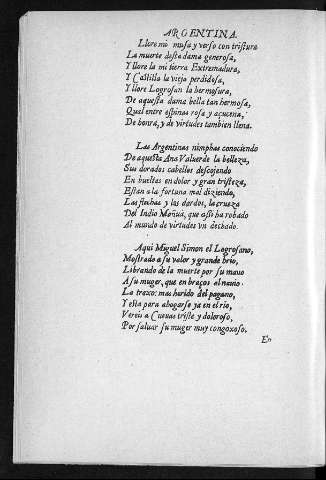 ARGENTINA.
Llore mi musa y verso con tristura
La muerte desta dama generosa,
Y llore la mi tierra Extremadura,
Y Castilla la vieja perdidosa,
Y llore Logrosan la hermosura,
De aquesta dama bella tan hermosa,
Qual entre espinas rosa y açucena,
De honra, y de virtudes tambien llena.
Las Argentinas nimphas conociendo
De aquesta Ana Valuerde la belleza,
Sus dorados cabellos descojendo
En bueltas en dolor y gran tristeza,
Estan a la fortuna mal diziendo,
Las flechas y los dardos, la crueza
Del Indio Mañuá, que assi ha robado
Al mundo de virtudes vn dechado.
Aqui Miguel Simon el Logrosano,
Mostrado a su valor y grande brio,
Librando de la muerte por su mano
A su muger, que en braços al nauio.
La traxo: mas herido del pagano,
Y esta para ahogarse ya en el rio,
Vereis a Cueuas triste y doloroso,
Por saluar su muger muy congoxoso.
En